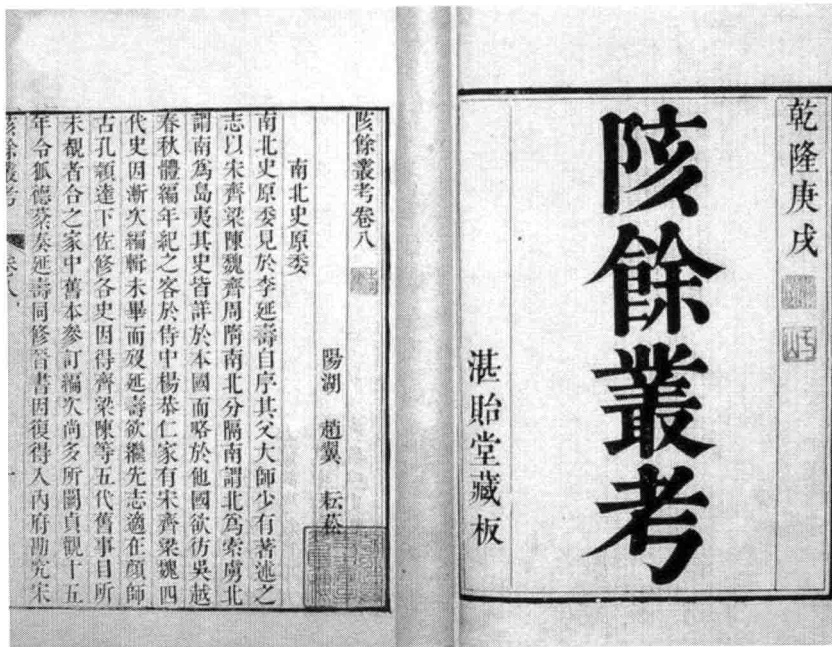 乾隆庚戌
陔餘叢考
湛貽堂藏板
陔餘叢考卷八
陽湖 趙翼 耘菘
南北史原委
南北史原委見於李延壽自序其父大師少有著述之
志以宋齊梁陳魏齊周隋南北分隔南謂北爲索虜北
謂南爲島夷其史皆詳於本國而略於他國欲彷吳越
春秋體編年紀之客於侍中楊恭仁家有宋齊梁魏四
代史因漸次編輯未畢而歿延壽欲繼先志適在顏師
古孔頴達下佐修各史因得齊梁陳等五代舊事目所
未覩者合之家中舊本參訂編次尚多所闕貞觀十五
年令狐德棻奏延壽同修晉書因復得入內府勘究宋
陔餘叢考 卷八 一